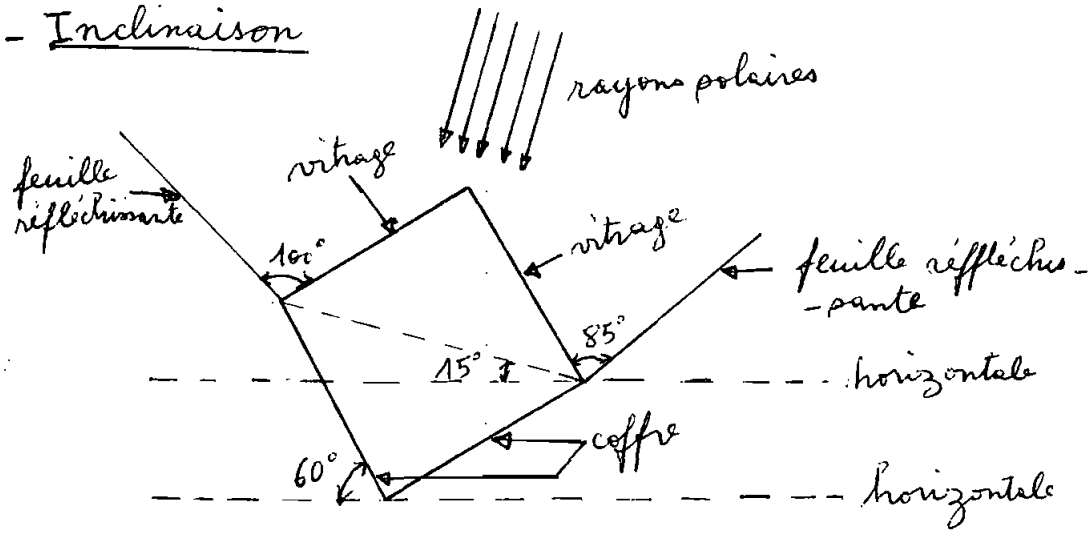 - Inclinaison
rayons solaires
vitrage
feuille
réfléchissante
100°
vitrage
feuille réffléchis-
-sante
85°
15°
horizontale
coffre
60°
horizontale